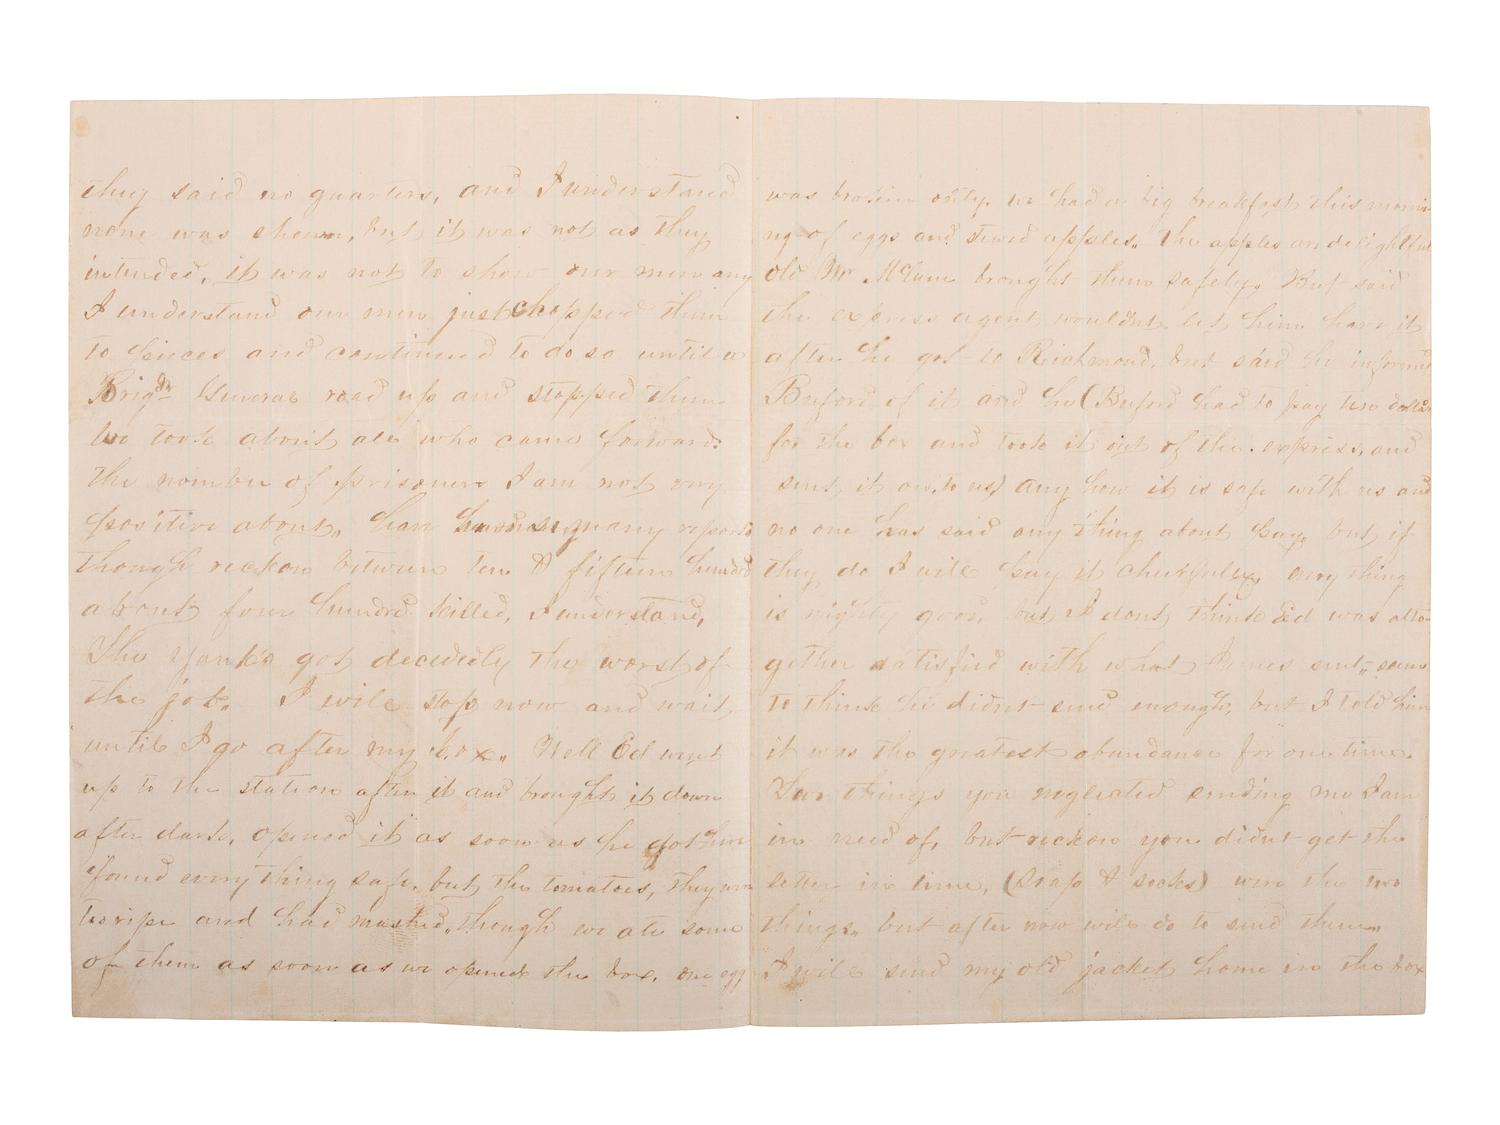 they said no quarters, and I understand
none was shown, but it was not as they
intended, it was not to show our men any
I understand our men just chopped them
to pieces and continued to do so until a
Brigdr General road up and stopped them
We took about all who came forward.
the nomber of prisoners I am not very
positive about. have heard so many reports
though reckon between ten & fifteen hundred
about four hundred killed, I understand,
The Yanks got decidedly the worst of
the job. I will stop now and wait,
until I go after my box. Well Ed went
up to the station after it and brought it down
after dark, opened it as soon as he got here
found everything safe, but the tomatoes, they were
too ripe and had mashed, though we ate some
of them as soon as we opened the box, one egg
was broken only. we had a big breakfast this morni
ng of eggs and stewed apples. The apples are delightful
old Mr McCune brought them safely. But said
the express agent wouldnt let him have it
after he got to Richmond, but said he informed
Buford of it and he (Buford had to pay ten dollars
for the box and took it out of the express, and
sent it on, to us) any how it is safe with us and
no one has said any thing about pay, but if
they do I will pay it cheerfully, every thing
is mighty good, but I dont think Ed was alto-
gether satisfied with what James sent, seem
to think he didnt send enough, but I told him
it was the greatest abundance for one time.
Two things you neglected sending me I am
in need of, but reckon you didnt get the
letter in time, (soap & socks) were the two
things. but after now will do to send them.
I will send my old jacket home in the box